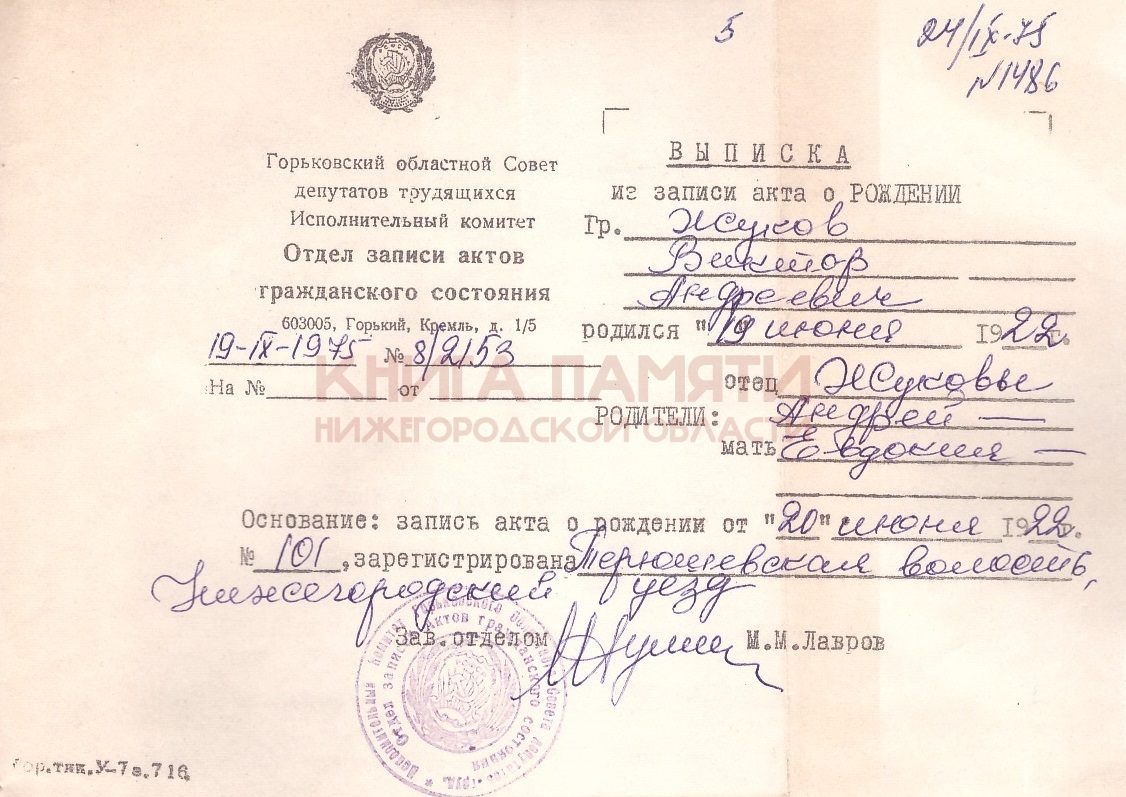 5
24/IX-75
N1486
Горьковский областной Совет
депутатов трудящихся
Исполнительный комитет
Отдел записи актов
гражданского состояния
603005, Горький, Кремль, д. 1/5
19-IX-1975 № 8/2153
На № от
ВЫПИСКА
из записи акта о РОЖДЕНИИ
Гр. Жуков
Виктор
Андреевич
родился "19" июня 1922г.
отец Жуковы
РОДИТЕЛИ: Андрей —
мать Евдокия —
КНИГА ПАМЯТИ
НИЖЕГОРОДСКОЙ ОБЛАСТИ
Основание: запись акта о рождении от "20" июня 1922г.
№ 101, зарегистрирована Терюшевская волость,
Нижегородский уезд
Зав.отделом М.М.Лавров
Отдел записи актов гражданского состояния
Гор.тип.У-7з.716